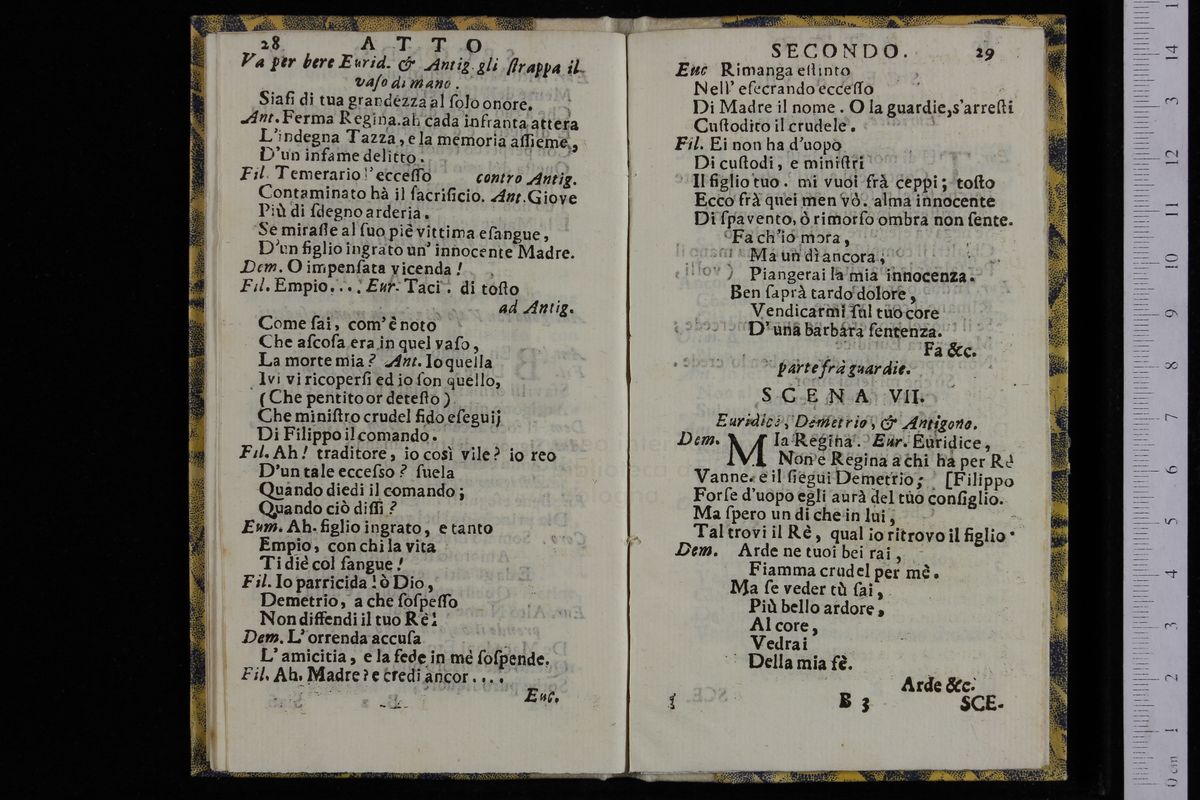 28 ATTO
Va per bere Eurid. & Antig. gli ſtrappa il
vaſo di mano.
Siaſi di tua grandezza al ſolo onore.
Ant. Ferma Regina. ah cada infranta atterra
L'indegna Tazza, e la memoria aſſieme,
D'un infame delitto.
Fil. Temerario l'ecceſſo contro Antig.
Contaminato hà il ſacrificio. Ant. Giove
Più di ſdegno arderia.
Se miraſſe al ſuo piè vittima eſangue,
D'un figlio ingrato un' innocente Madre.
Dem. O impenſata vicenda!
Fil. Empio.... Eur. Taci. di toſto
ad Antig.
Come ſai, com'è noto
Che aſcoſa era in quel vaſo,
La morte mia? Ant. Io quella
Ivi vi ricoperſi ed io ſon quello,
(Che pentito or deteſto)
Che miniſtro crudel fido eſeguij
Di Filippo il comando.
Fil. Ah! traditore, io così vile? io reo
D'un tale ecceſso? ſuela
Quando diedi il comando;
Quando ciò diſſi?
Eum. Ah. figlio ingrato, e tanto
Empio, con chi la vita
Ti diè col ſangue!
Fil. Io parricida! ò Dio,
Demetrio, a che ſoſpeſſo
Non diffendi il tuo Rè!
Dem. L'orrenda accuſa
L'amicitia, e la fede in mè ſoſpende.
Fil. Ah. Madre? e credi ancor....
Euc.
SECONDO. 29
Euc Rimanga eſtinto
Nell' eſecrando ecceſſo
Di Madre il nome. O la guardie, s'arreſti
Cuſtodito il crudele.
Fil. Ei non ha d'uopo
Di cuſtodi, e miniſtri
Il figlio tuo. mi vuoi frà ceppi; toſto
Ecco frà quei men vò. alma innocente
Di ſpavento, ò rimorſo ombra non ſente.
Fa ch'io mora,
Ma un dì ancora,
Piangerai la mia innocenza.
Ben ſaprà tardo dolore,
Vendicarmi ſul tuo core
D'una barbara ſentenza.
Fa &c.
parte frà guardie.
SCENA VII.
Euridice, Demetrio, & Antigono.
Dem. MIa Regina. Eur. Euridice,
Non è Regina a chi ha per Rè
Vanne. e il ſiegui Demetrio; [Filippo
Forſe d'uopo egli aurà del tuo conſiglio.
Ma ſpero un di che in lui,
Tal trovi il Rè, qual io ritrovo il figlio.
Dem. Arde ne tuoi bei rai,
Fiamma crudel per mè.
Ma ſe veder tù ſai,
Più bello ardore,
Al core,
Vedrai
Della mia fè.
Arde &c.
B 3 SCE-